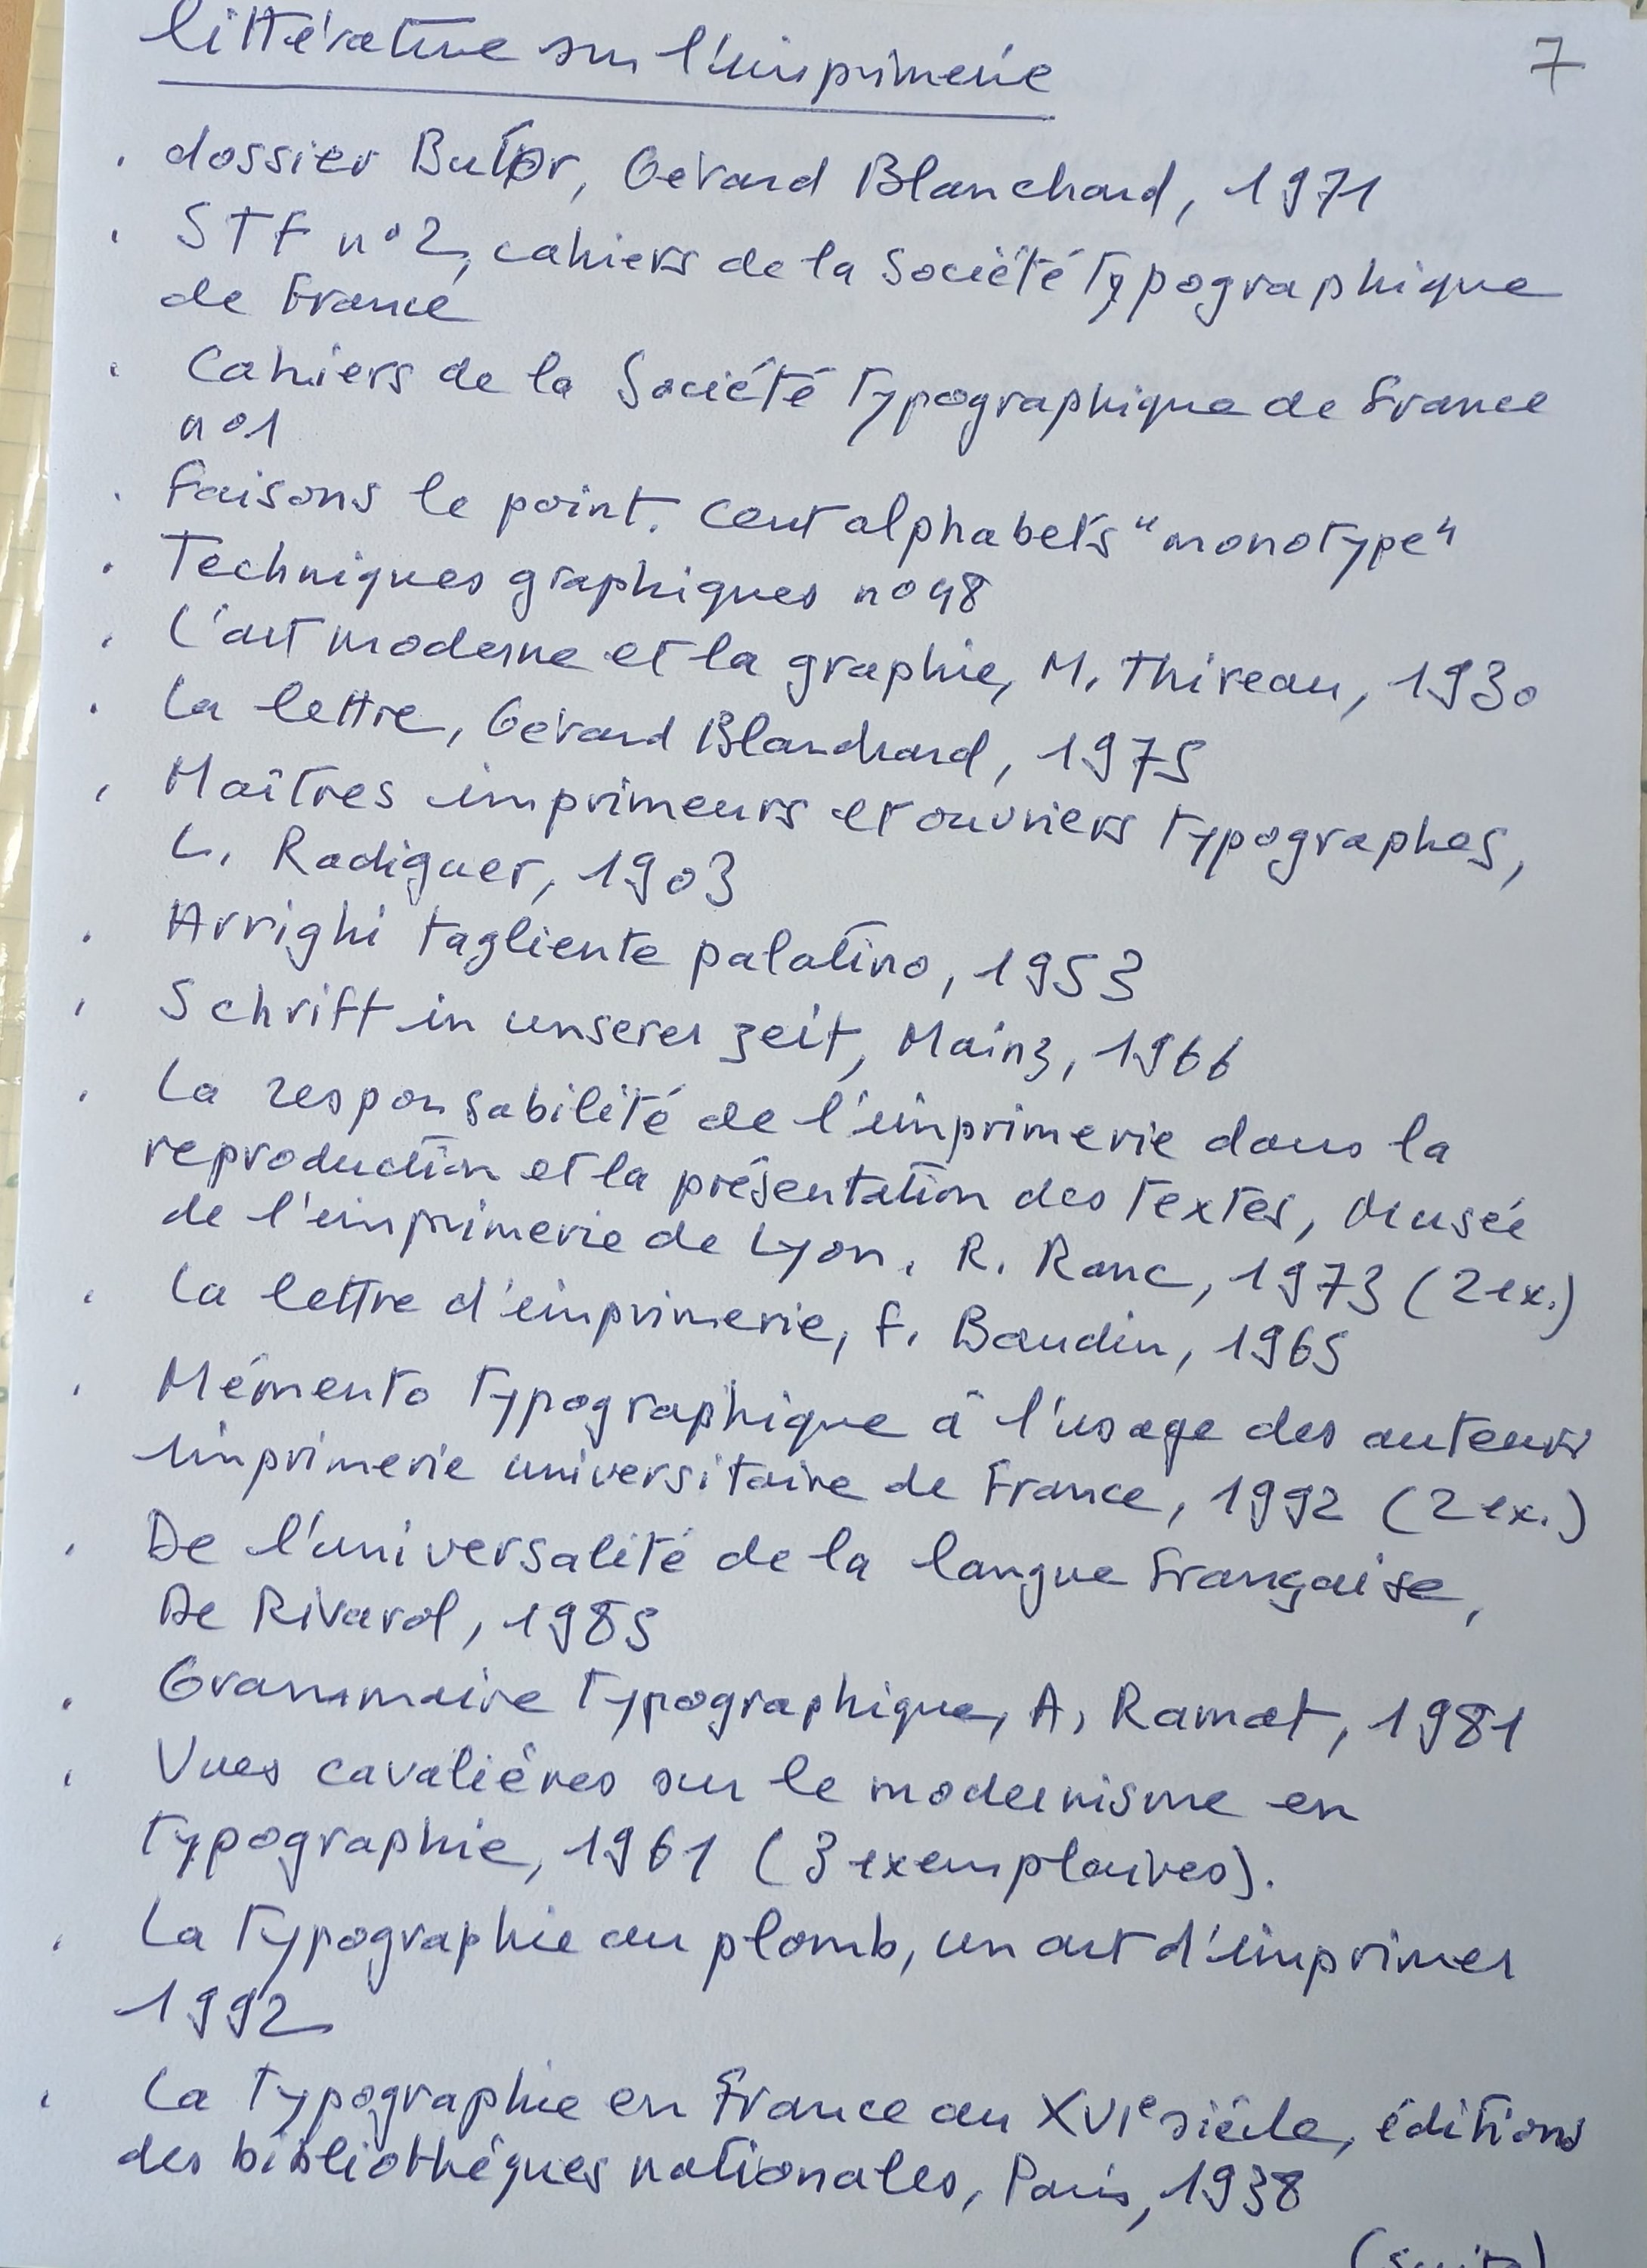 littérature sur l'imprimerie
7
. dossier Butor, Gérard Blanchard, 1971
. STF n°2, cahiers de la Société Typographique
de France
. Cahiers de la Société Typographique de France
n°1
. Faisons le point. Cent alphabets "monotype"
. Techniques graphiques n° 98
. L'art moderne et la graphie, M. Thireau, 1930
. La lettre, Gérard Blanchard, 1975
. Maîtres imprimeurs et ouvriers typographes,
L. Radiguer, 1903
. Arrighi tagliente palatino, 1953
. Schrift in unserer zeit, Mainz, 1966
. La responsabilité de l'imprimerie dans la
reproduction et la présentation des textes, Musée
de l'imprimerie de Lyon. R. Ranc, 1973 (2 ex.)
. La lettre d'imprimerie, F. Baudin, 1965
. Mémento typographique à l'usage des auteurs
imprimerie universitaire de France, 1992 (2 ex.)
. De l'universalité de la langue française,
De Rivarol, 1985
. Grammaire Typographique, A. Ramat, 1981
. Vues cavalières sur le modernisme en
typographie, 1961 (3 exemplaires).
. La Typographie au plomb, un art d'imprimer
1992
. La Typographie en France au XVIe siècle, éditions
des bibliothèques nationales, Paris, 1938
(suite)